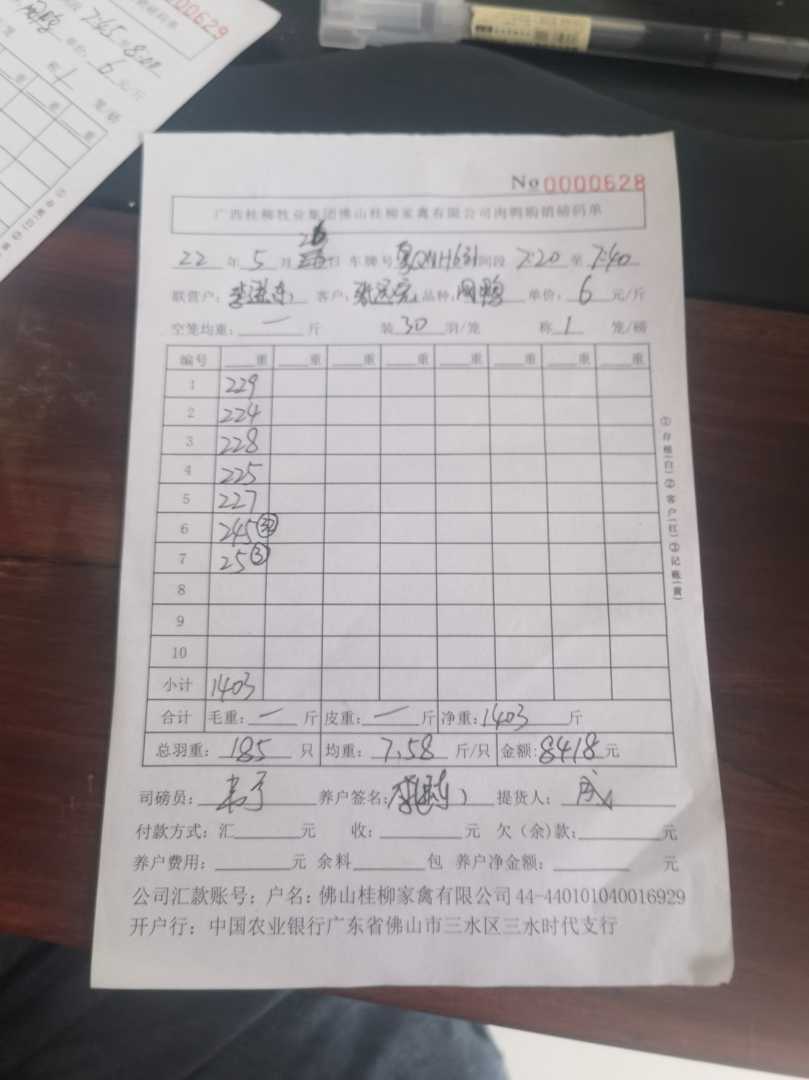 0000629
2:45
单价: 6 元/斤
称 1 笼/磅
No 0000628
广西桂柳牧业集团佛山桂柳家禽有限公司肉鸭购销磅码单
22 年 5 月 26 日 车牌号 间段 7:20 至 7:40
联营户: 客户: 品种: 单价: 6 元/斤
空笼均重: 一 斤 装 30 羽/笼 称 1 笼/磅
编号 重 重 重 重 重 重 重 重
1 229
2 224
3 228
4 225
5 227
6 245 32
7 25 3
8
9
10
小计 1403
合计 毛重: 一 斤 皮重: 一 斤 净重: 1403 斤
总羽重: 185 只 均重: 7.58 斤/只 金额: 8418 元
司磅员: 养户签名: 提货人:
付款方式: 汇 元 收: 元 欠(余)款: 元
养户费用: 元 余料 包 养户净金额: 元
公司汇款账号: 户名: 佛山桂柳家禽有限公司 44-440101040016929
开户行: 中国农业银行广东省佛山市三水区三水时代支行
①存根(白)②客户(红)③记帐(黄)